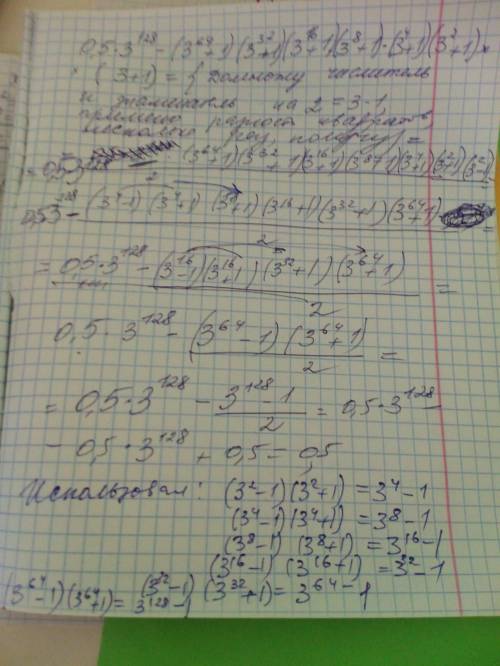 0,5·3¹²⁸ - (3⁶⁴-1)(3³²+1)(3¹⁶+1)(3⁸+1)·(3⁴+1)(3²+1)×
× (3+1) = { Домножу числитель
и знаменатель на 2 = 3-1,
применю разность квадратов
несколько раз, получу} =
= 0,5·3¹²⁸ (3⁶⁴+1)(3³²+1)(3¹⁶+1)(3⁸+1)(3⁴+1)(3²+1)(3²-1)
2
0,5·3¹²⁸ - (3⁴-1)(3⁴+1)(3⁸+1)(3¹⁶+1)(3³²+1)(3⁶⁴+1)
2
= 0,5·3¹²⁸ - (3¹⁶-1)(3¹⁶+1)(3³²+1)(3⁶⁴+1) =
2
0,5·3¹²⁸ - (3⁶⁴-1)(3⁶⁴+1) =
2
= 0,5·3¹²⁸ - 3¹²⁸-1 = 0,5·3¹²⁸ -
2
- 0,5·3¹²⁸ + 0,5 = 0,5
Использовал: (3²-1)(3²+1) = 3⁴-1
(3⁴-1)(3⁴+1) = 3⁸-1
(3⁸-1)(3⁸+1) = 3¹⁶-1
(3¹⁶-1)(3¹⁶+1) = 3³²-1
(3³²-1)(3³²+1) = 3⁶⁴-1
(3⁶⁴-1)(3⁶⁴+1) = 3¹²⁸-1